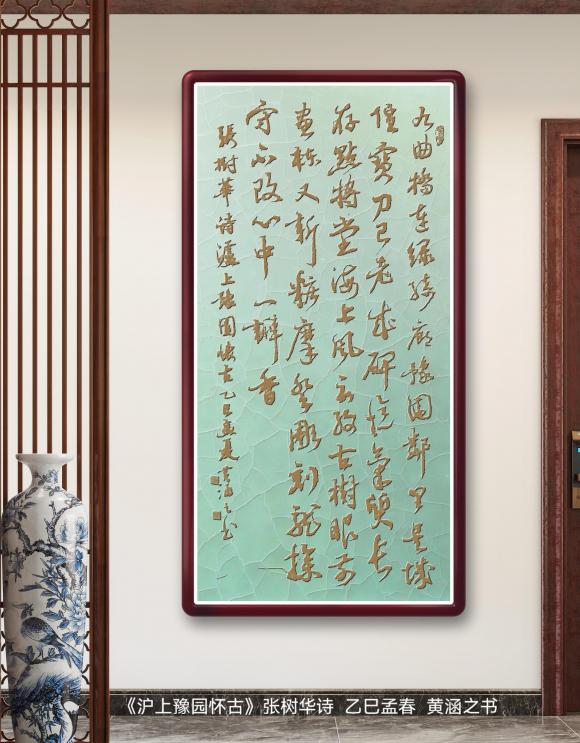 九曲橋連綠廊豫園鄰里是城
隍寶刀已老成碑氣質長
存點將堂海上風雲古樹眼前
畫棟又新粧摩登雕刻龍操
守不改心中一瓣香
張樹華詩滬上豫園懷古乙巳孟夏黃涵之書
《沪上豫园怀古》张树华诗 乙巳孟春 黄涵之书